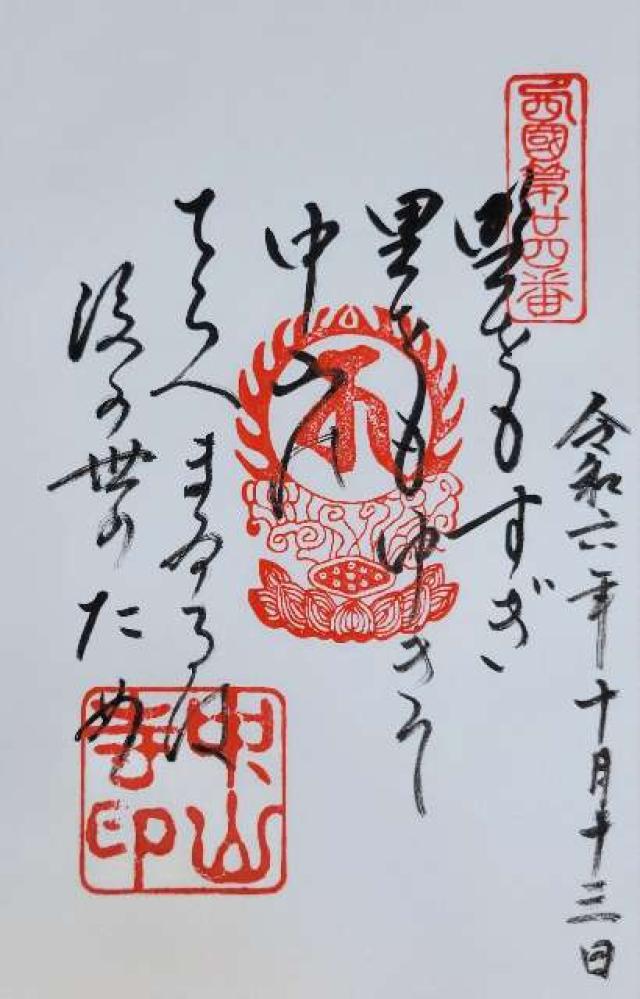 西國第廿四番
令和六年十月十三日
野をもすぎ
里をもゆきて
中山の
てらへまゐるは
後の世のため
中山
寺印